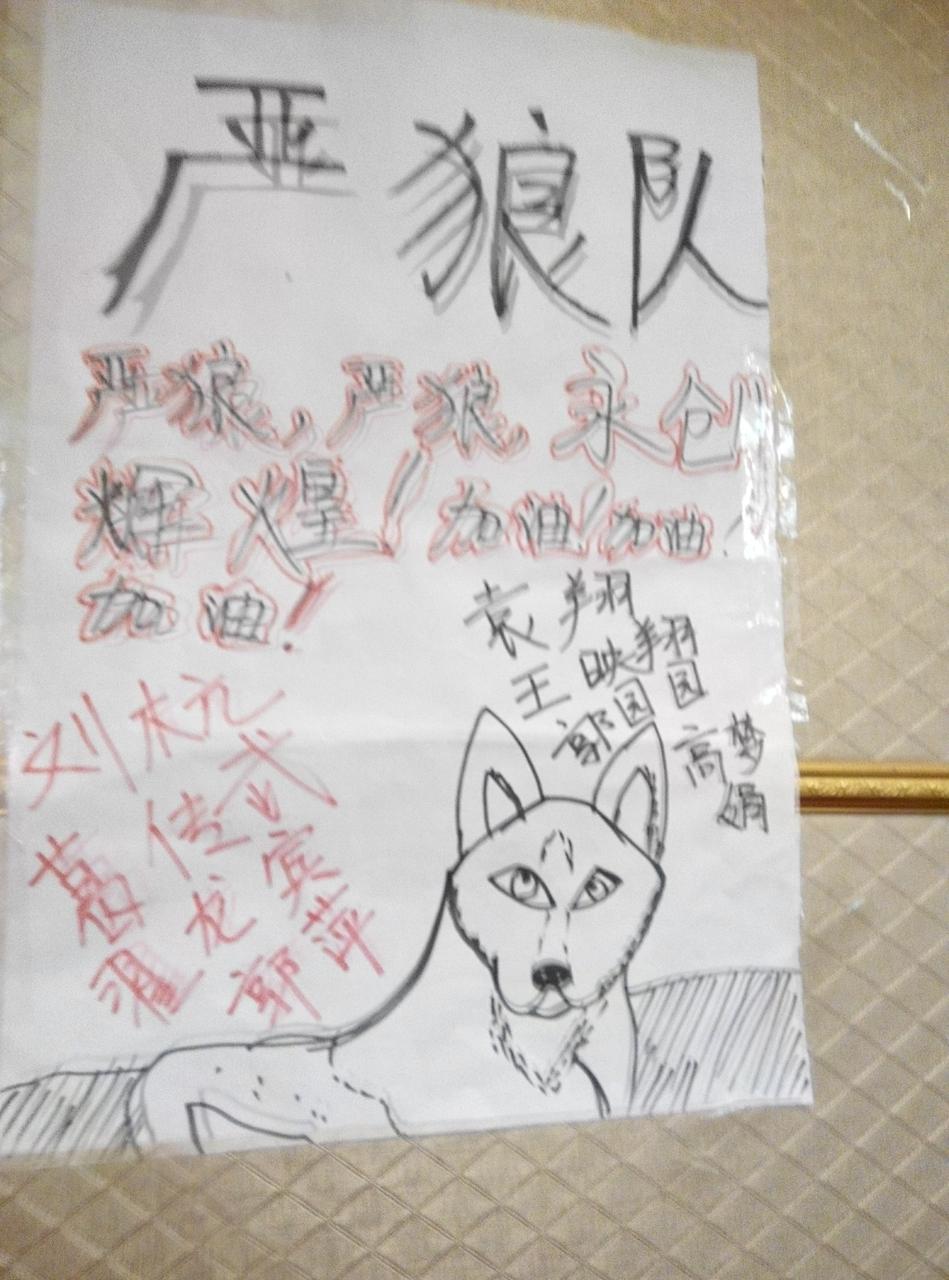 严狼队
严狼，严狼，永创
辉煌！加油！加油！
加油！
袁翔
王映翔
郭园园
高梦娟
刘杭
葛传武
翟龙宾
郭萍